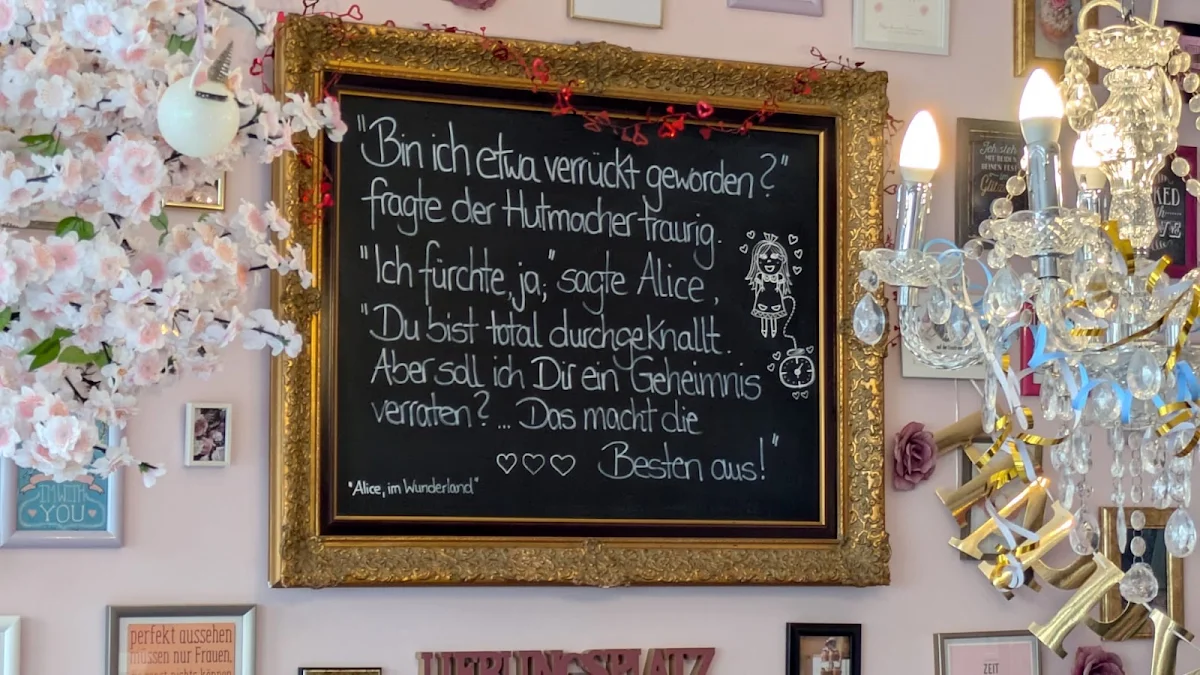 "Bin ich etwa verrückt geworden?"
fragte der Hutmacher traurig.
"Ich fürchte, ja," sagte Alice,
"Du bist total durchgeknallt.
Aber soll ich Dir ein Geheimnis
verraten? ... Das macht die
♡♡♡ Besten aus!"
"Alice, im Wunderland"
I'M WITH
YOU
perfekt aussehen
müssen nur Frauen,
LIEBLINGSPLATZ
ZEIT